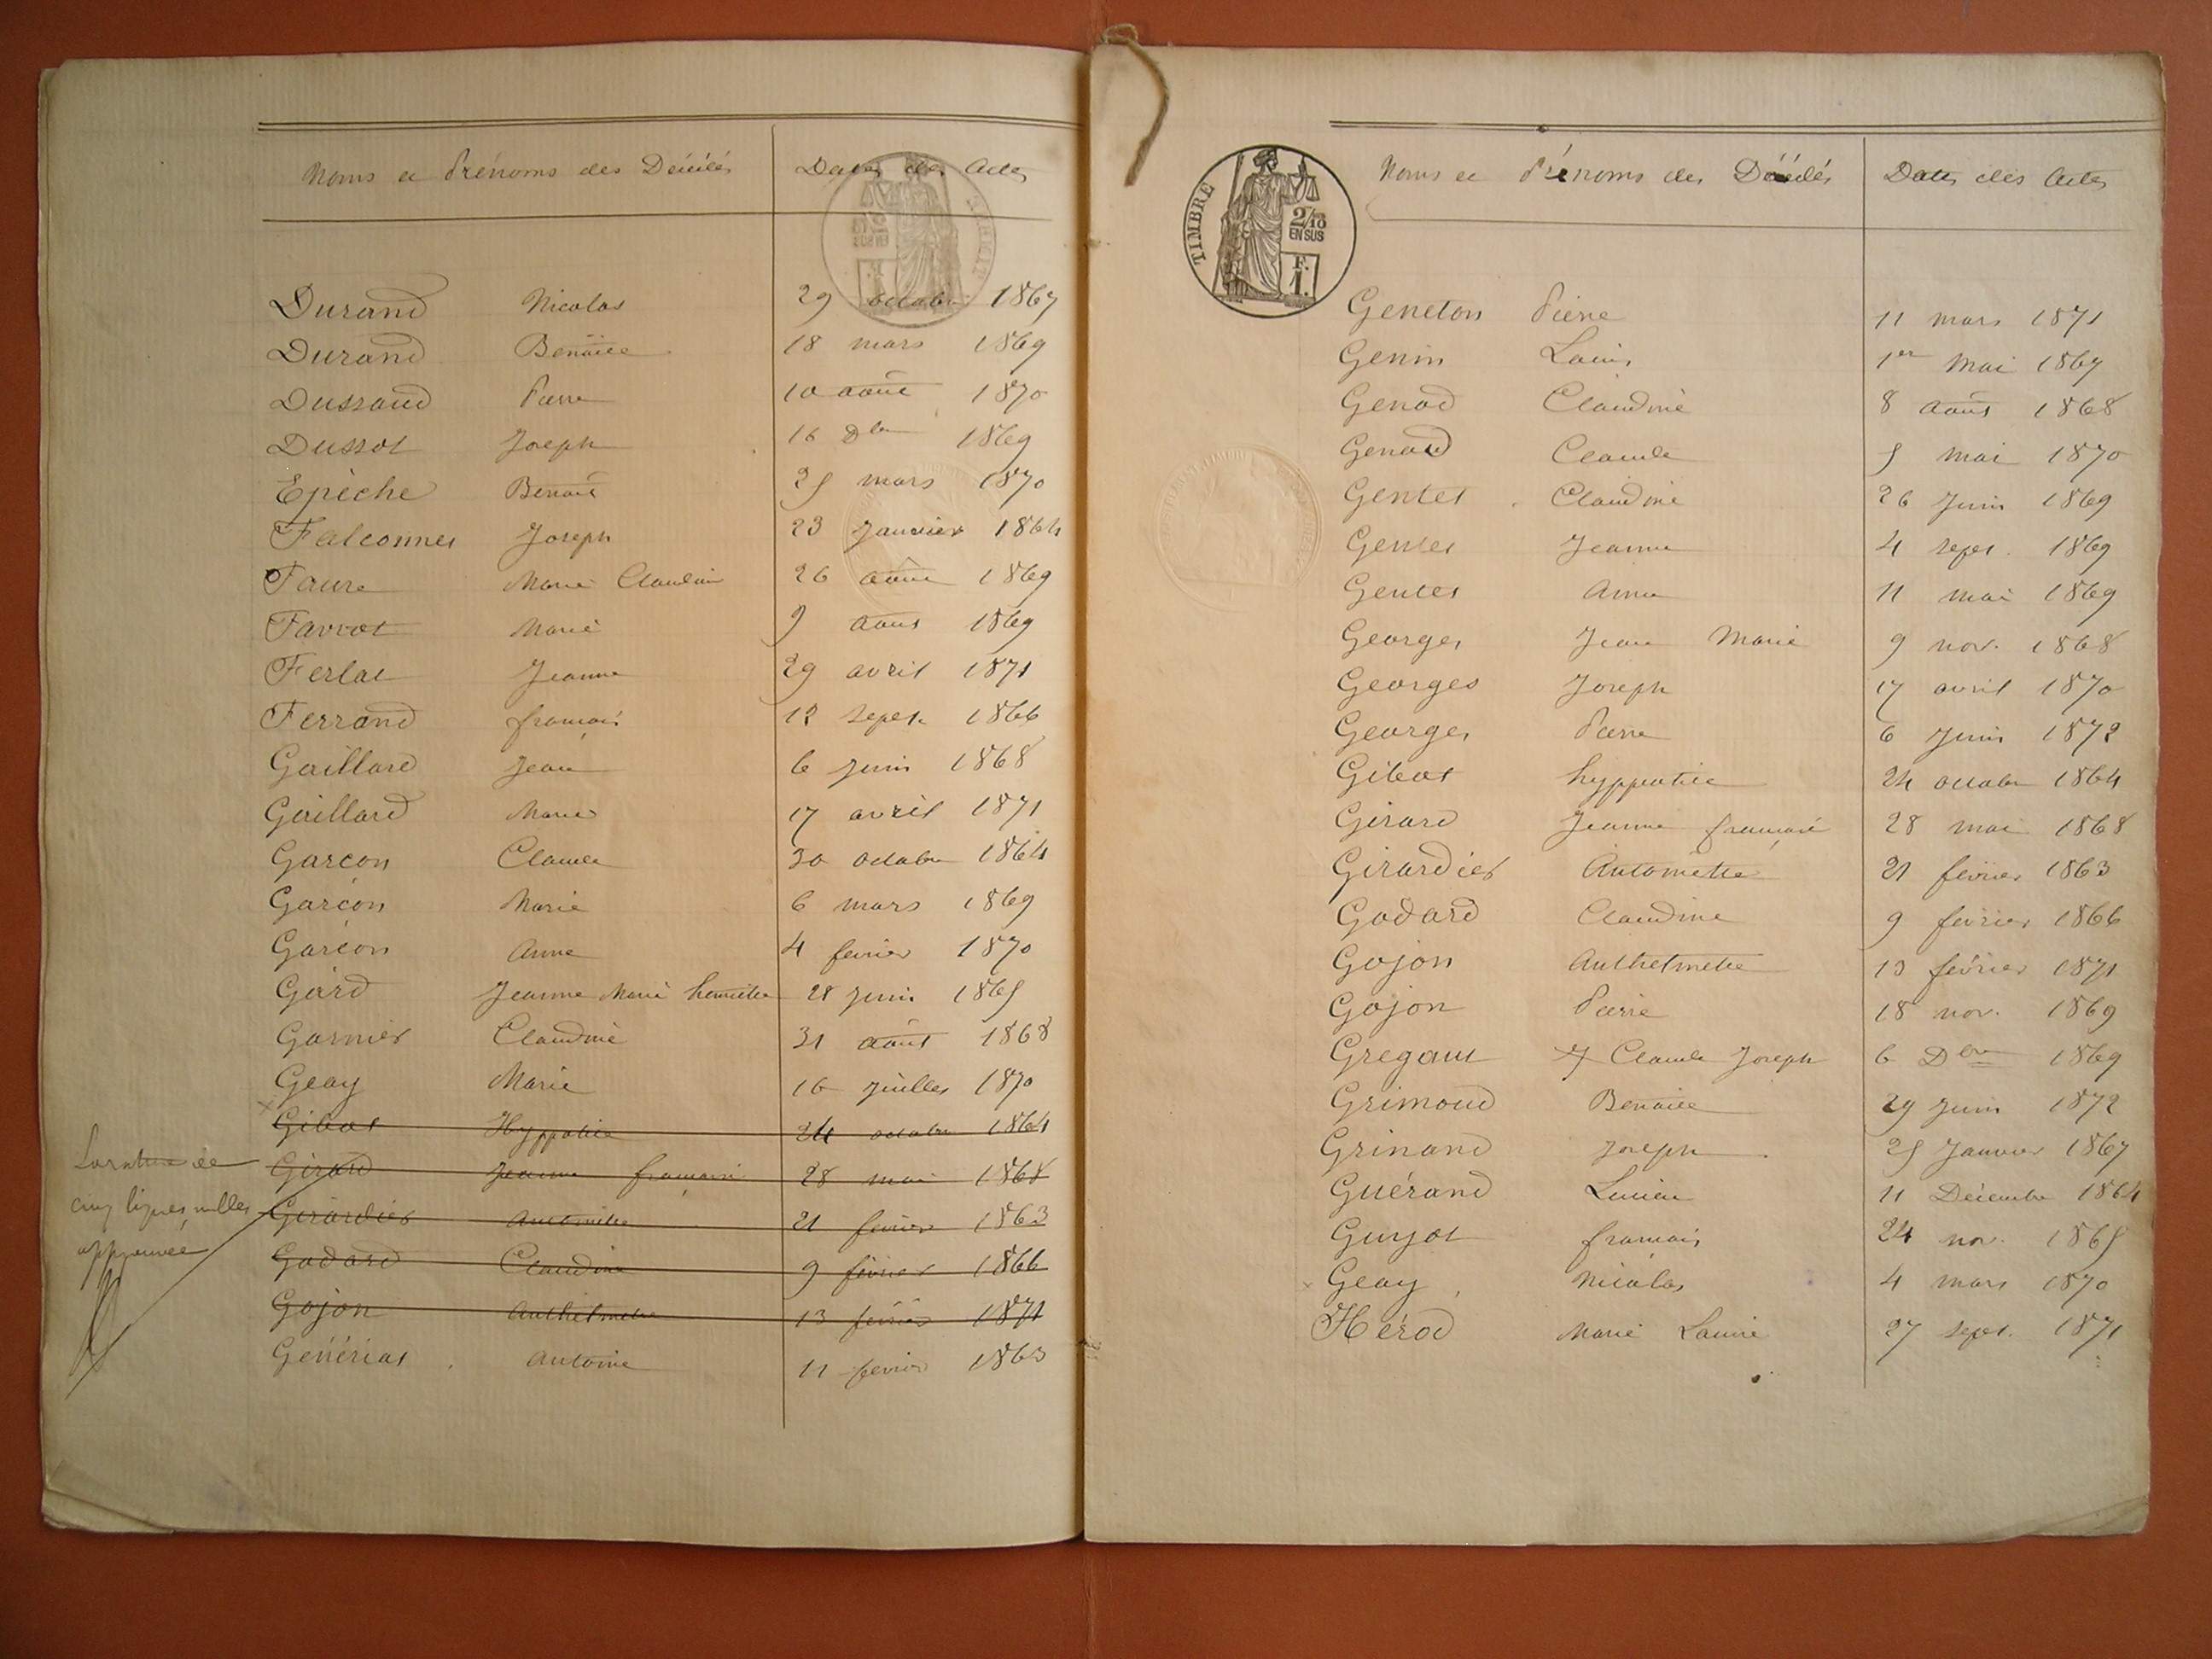 Noms et Prénoms des Décédés Dates des Actes
Durand Nicolas 29 octobre 1867
Durand Benoite 18 mars 1869
Dussaud Pierre 10 août 1870
Dussot Joseph 16 Dbre 1869
Epèche Benoit 25 mars 1870
Falconnet Joseph 23 Janvier 1864
Faure Marie Claudine 26 août 1869
Favrot Marie 9 août 1869
Ferlat Jeanne 29 avril 1871
Ferrand françois 12 sept. 1866
Gaillard Jean 6 juin 1868
Gaillard Marie 17 avril 1871
Garçon Claude 30 octobre 1864
Garçon Marie 6 mars 1869
Garçon Anne 4 fevrier 1870
Gard Jeanne Marie 28 juin 1865
Garnier Claudine 31 août 1868
Geay Marie 16 juillet 1870
Gibot Hyppolite 24 octobre 1864
Girard Jeanne françoise 28 mai 1868
Girardier Antoinette 21 février 1863
Godard Claudine 9 février 1866
Gojon Anthelmette 13 février 1871
Générias Antoine 11 fevrier 1863
cinq lignes nulles
approuvée
TIMBRE
2/10
EN SUS
F.
1.
Noms et Prénoms des Décédés Dates des Actes
Geneton Pierre 11 mars 1871
Genin Louis 1er mai 1867
Genod Claudine 8 août 1868
Genod Claude 5 mai 1870
Gentet Claudine 26 Juin 1869
Gentet Jeanne 4 sept. 1869
Gentet Anne 11 mai 1869
Georges Jean Marie 9 nov. 1868
Georges Joseph 17 avril 1870
Georges Pierre 6 Juin 1872
Gibot hyppolite 24 octobre 1864
Girard Jeanne françoise 28 mai 1868
Girardier Antoinette 21 février 1863
Godard Claudine 9 février 1866
Gojon Anthelmette 13 février 1871
Gojon Pierre 18 nov. 1869
Gregaut Claude Joseph 6 Dbre 1869
Grimoud Benoite 29 juin 1872
Grinand Joseph 25 Janvier 1867
Guérand Lucien 11 Décembre 1864
Guyot françois 24 nov. 1865
Geay Nicolas 4 mars 1870
Hérod Marie Laurie 27 sept. 1871